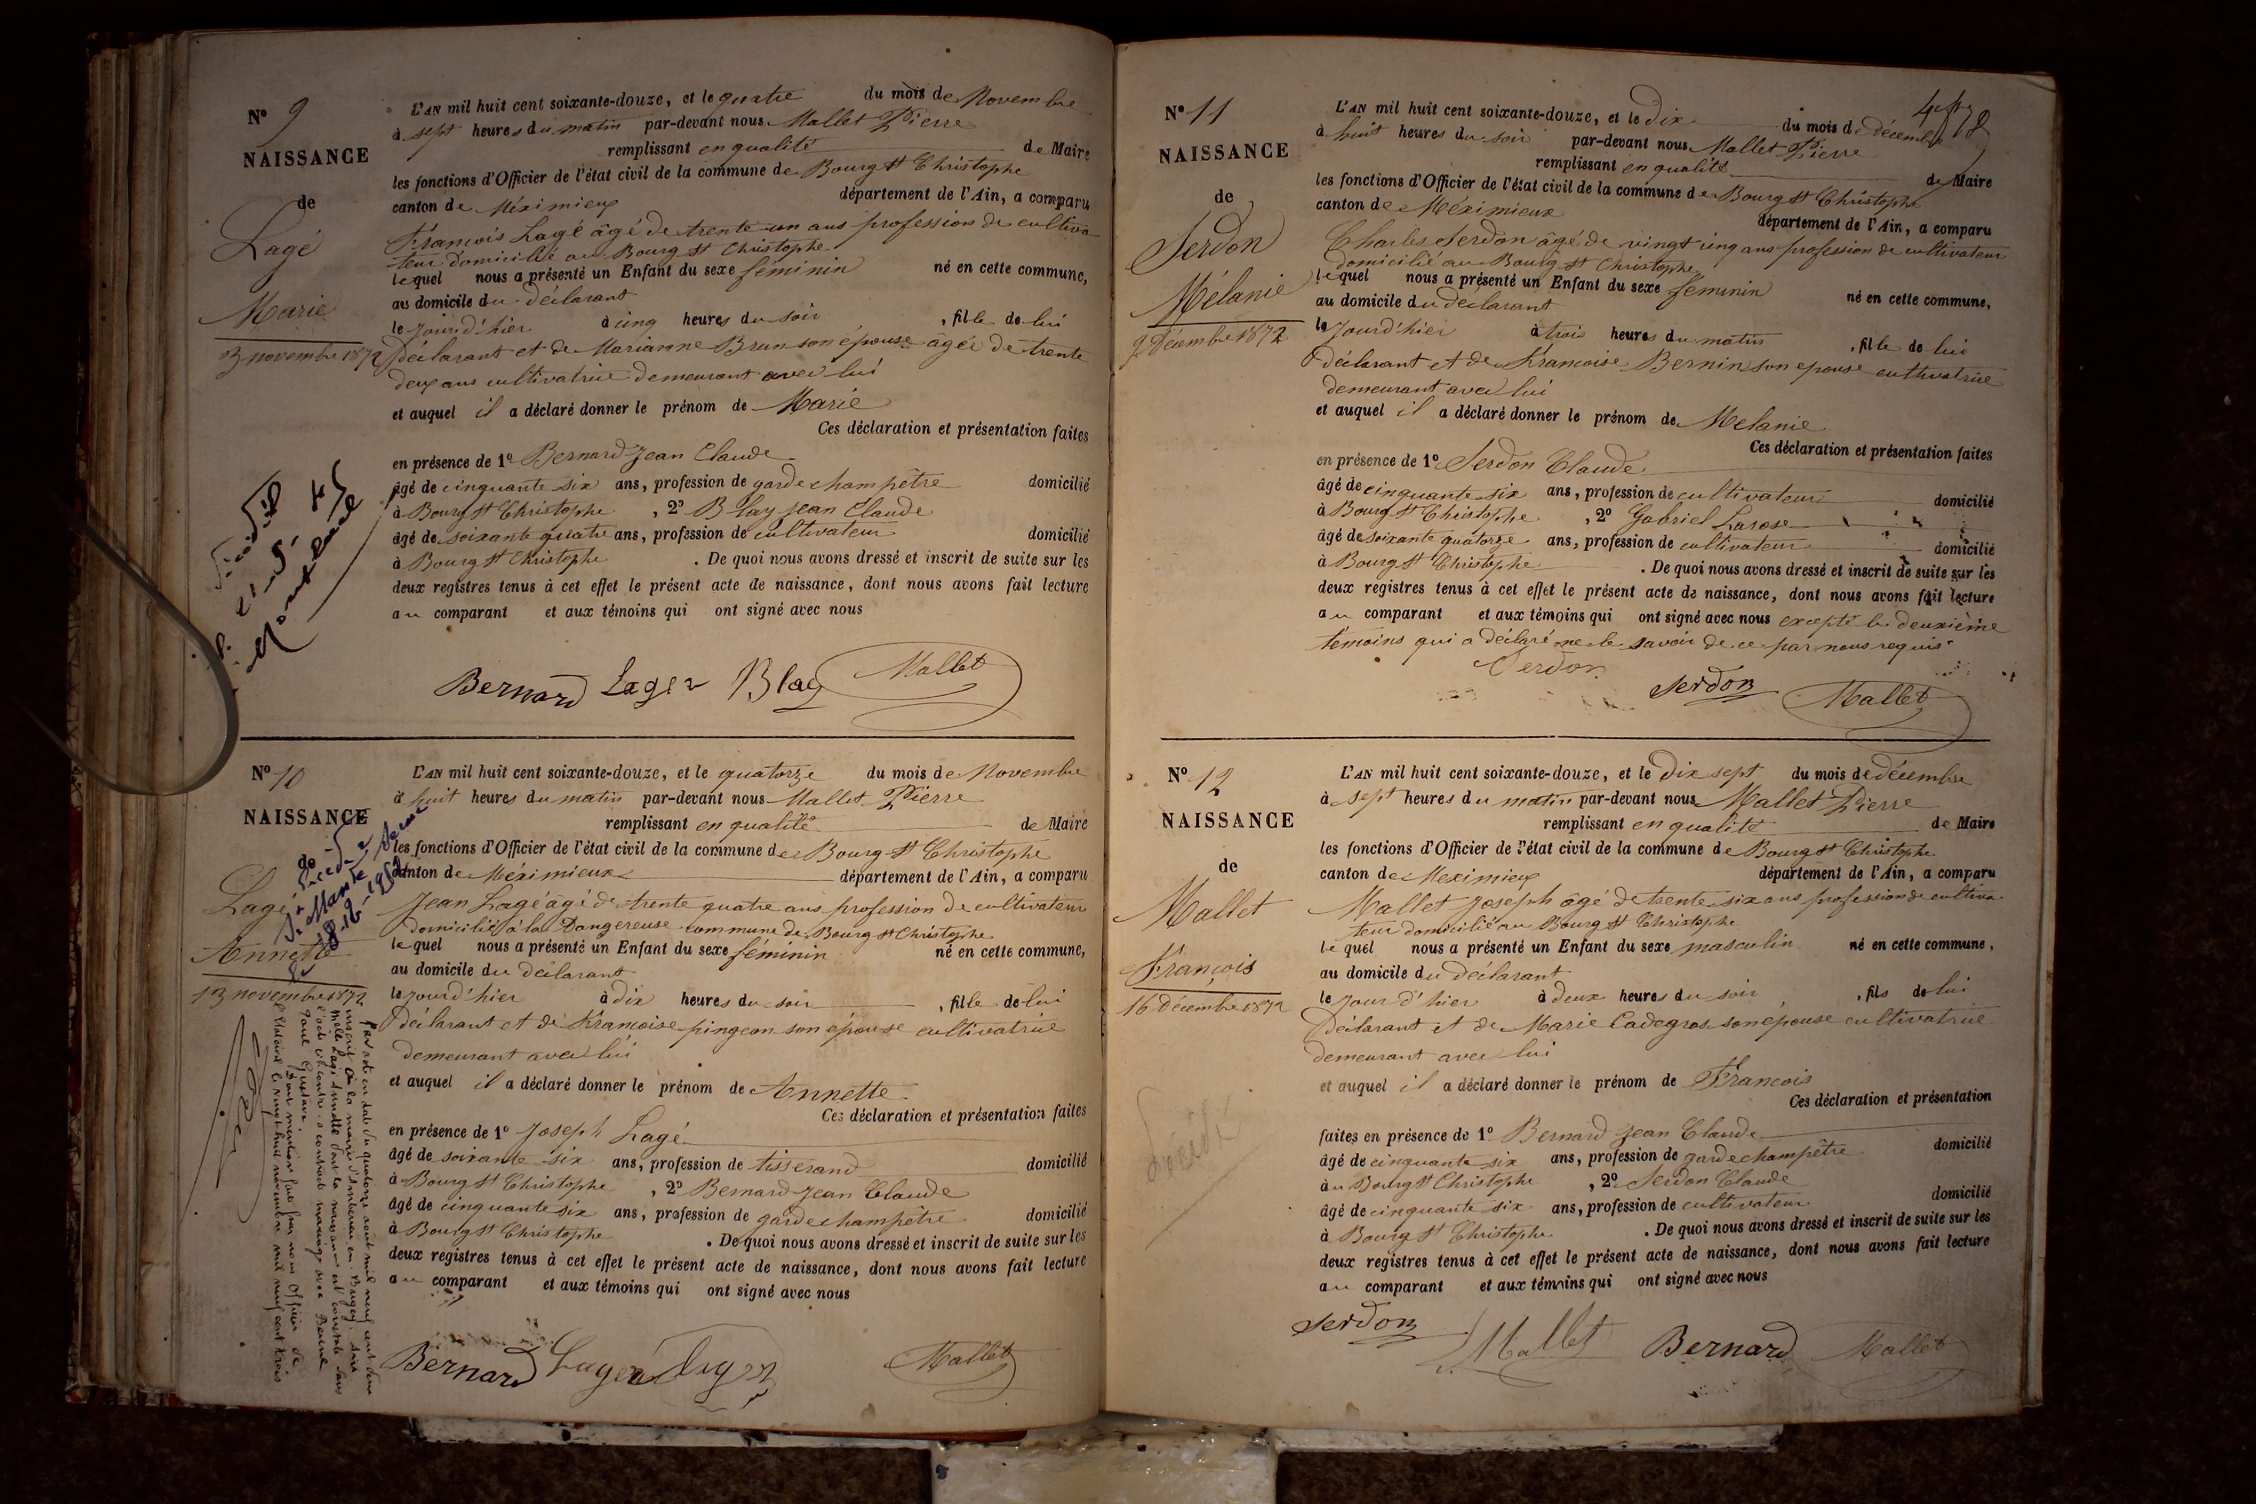 N° 9
NAISSANCE
de
Lagé
Marie
3 novembre 1872
L'AN mil huit cent soixante-douze, et le quatre du mois de Novembre
à sept heures du matin par-devant nous Mallet Pierre
remplissant en qualité de Maire
les fonctions d'Officier de l'état civil de la commune de Bourg St Christophe
canton de Méximieux département de l'Ain, a comparu
François Lagé âgé de trente un ans profession de cultiva
teur domicilié au Bourg St Christophe
lequel nous a présenté un Enfant du sexe féminin né en cette commune,
au domicile du déclarant
le jour d'hier à cinq heures du soir, fille de lui
déclarant et de Marianne Brun son épouse agée de trente
deux ans cultivatrice demeurant avec lui
et auquel il a déclaré donner le prénom de Marie
Ces déclaration et présentation faites
en présence de 1° Bernard Jean Claude
âgé de cinquante six ans, profession de garde champêtre domicilié
à Bourg St Christophe, 2° Blay Jean Claude
âgé de soixante quatre ans, profession de cultivateur domicilié
à Bourg St Christophe. De quoi nous avons dressé et inscrit de suite sur les
deux registres tenus à cet effet le présent acte de naissance, dont nous avons fait lecture
au comparant et aux témoins qui ont signé avec nous
Bernard Lager Blay Mallet
N° 10
NAISSANCE
de
Lagé
Annette
13 novembre 1872
L'AN mil huit cent soixante-douze, et le quatorze du mois de Novembre
à huit heures du matin par-devant nous Mallet Pierre
remplissant en qualité de Maire
les fonctions d'Officier de l'état civil de la commune de Bourg St Christophe
canton de Méximieux département de l'Ain, a comparu
Jean Lagé âgé de trente quatre ans profession de cultivateur
domicilié à la Dangereuse commune de Bourg St Christophe
lequel nous a présenté un Enfant du sexe féminin né en cette commune,
au domicile du déclarant
le jour d'hier à dix heures du soir, fille de lui
déclarant et de Francoise pingeon son épouse cultivatrice
demeurant avec lui
et auquel il a déclaré donner le prénom de Annette
Ces déclaration et présentation faites
en présence de 1° Joseph Lagé
âgé de soixante six ans, profession de tisserand domicilié
à Bourg St Christophe, 2° Bernard Jean Claude
âgé de cinquante six ans, profession de garde champêtre domicilié
à Bourg St Christophe. De quoi nous avons dressé et inscrit de suite sur les
deux registres tenus à cet effet le présent acte de naissance, dont nous avons fait lecture
au comparant et aux témoins qui ont signé avec nous
Bernard Lager Mallet
N° 11
NAISSANCE
de
Serdon
Mélanie
9 Décembre 1872
L'AN mil huit cent soixante-douze, et le dix du mois de décembre
à huit heures du soir par-devant nous Mallet Pierre
remplissant en qualité de Maire
les fonctions d'Officier de l'état civil de la commune de Bourg St Christophe
canton de Méximieux département de l'Ain, a comparu
Charles Serdon âgé de vingt cinq ans profession de cultivateur
domicilié au Bourg St Christophe
lequel nous a présenté un Enfant du sexe féminin né en cette commune,
au domicile du déclarant
le jour d'hier à trois heures du matin, fille de lui
déclarant et de Francoise Bernin son epouse cultivatrice
demeurant avec lui
et auquel il a déclaré donner le prénom de Melanie
Ces déclaration et présentation faites
en présence de 1° Serdon Claude
âgé de cinquante six ans, profession de cultivateur domicilié
à Bourg St Christophe, 2° Gabriel Larose
âgé de soixante quatorze ans, profession de cultivateur domicilié
à Bourg St Christophe. De quoi nous avons dressé et inscrit de suite sur les
deux registres tenus à cet effet le présent acte de naissance, dont nous avons fait lecture
au comparant et aux témoins qui ont signé avec nous excepté le deuxième
témoins qui a déclaré ne le savoir de ce par nous requis
Serdon Serdon Mallet
N° 12
NAISSANCE
de
Mallet
François
16 Décembre 1872
L'AN mil huit cent soixante-douze, et le Dix sept du mois de décembre
à sept heures du matin par-devant nous Mallet Pierre
remplissant en qualité de Maire
les fonctions d'Officier de l'état civil de la commune de Bourg St Christophe
canton de Meximieux département de l'Ain, a comparu
Mallet Joseph âgé de trente six ans profession de cultiva
teur domicilié au Bourg St Christophe
lequel nous a présenté un Enfant du sexe masculin né en cette commune,
au domicile du déclarant
le jour d'hier à deux heures du soir, fils de lui
déclarant et de Marie Cadegros son epouse cultivatrice
demeurant avec lui
et auquel il a déclaré donner le prénom de Francois
Ces déclaration et présentation
faites en présence de 1° Bernard Jean Claude
âgé de cinquante six ans, profession de garde champêtre domicilié
à au Bourg St Christophe, 2° Serdon Claude
âgé de cinquante six ans, profession de cultivateur domicilié
à Bourg St Christophe. De quoi nous avons dressé et inscrit de suite sur les
deux registres tenus à cet effet le présent acte de naissance, dont nous avons fait lecture
au comparant et aux témoins qui ont signé avec nous
Serdon Mallet Bernard Mallet